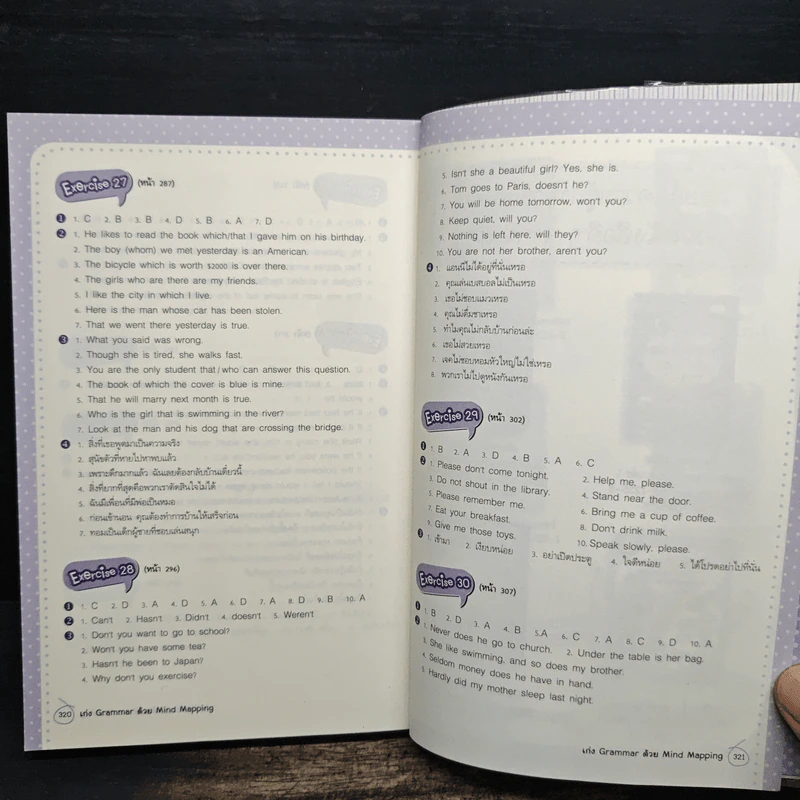 Exercise 27 (หน้า 287)
1 1. C 2. B 3. B 4. D 5. B 6. A 7. D
2 1. He likes to read the book which/that I gave him on his birthday.
2. The boy (whom) we met yesterday is an American.
3. The bicycle which is worth $2000 is over there.
4. The girls who are there are my friends.
5. I like the city in which I live.
6. Here is the man whose car has been stolen.
7. That we went there yesterday is true.
3 1. What you said was wrong.
2. Though she is tired, she walks fast.
3. You are the only student that/who can answer this question.
4. The book of which the cover is blue is mine.
5. That he will marry next month is true.
6. Who is the girl that is swimming in the river?
7. Look at the man and his dog that are crossing the bridge.
4 1. สิ่งที่เธอพูดมาเป็นความจริง
2. สุนัขตัวที่หายไปหาพบแล้ว
3. เพราะดึกมากแล้ว ฉันเลยต้องกลับบ้านเดี๋ยวนี้
4. สิ่งที่ยากที่สุดคือพวกเราตัดสินใจไม่ได้
5. ฉันมีเพื่อนที่มีพ่อเป็นหมอ
6. ก่อนเข้านอน คุณต้องทำการบ้านให้เสร็จก่อน
7. ทอมเป็นเด็กผู้ชายที่ชอบเล่นสนุก
Exercise 28 (หน้า 296)
1 1. C 2. D 3. A 4. D 5. A 6. D 7. A 8. D 9. B 10. A
2 1. Can't 2. Hasn't 3. Didn't 4. doesn't 5. Weren't
3 1. Don't you want to go to school?
2. Won't you have some tea?
3. Hasn't he been to Japan?
4. Why don't you exercise?
320 เก่ง Grammar ด้วย Mind Mapping
5. Isn't she a beautiful girl? Yes, she is.
6. Tom goes to Paris, doesn't he?
7. You will be home tomorrow, won't you?
8. Keep quiet, will you?
9. Nothing is left here, will they?
10. You are not her brother, aren't you?
4 1. แอนนี่ไม่ได้อยู่ที่นั่นเหรอ
2. คุณเล่นเบสบอลไม่เป็นเหรอ
3. เธอไม่ชอบแมวเหรอ
4. คุณไม่ดื่มชาเหรอ
5. ทำไมคุณไม่กลับบ้านก่อนล่ะ
6. เธอไม่สวยเหรอ
7. เจคไม่ชอบหอมหัวใหญ่ไม่ใช่เหรอ
8. พวกเราไม่ไปดูหนังกันเหรอ
Exercise 29 (หน้า 302)
1 1. B 2. A 3. D 4. B 5. A 6. C
2 1. Please don't come tonight. 2. Help me, please.
3. Do not shout in the library. 4. Stand near the door.
5. Please remember me. 6. Bring me a cup of coffee.
7. Eat your breakfast. 8. Don't drink milk.
9. Give me those toys. 10. Speak slowly, please.
3 1. เข้ามา 2. เงียบหน่อย 3. อย่าเปิดประตู 4. ใจดีหน่อย 5. ได้โปรดอย่าไปที่นั่น
Exercise 30 (หน้า 307)
1 1. B 2. D 3. A 4. B 5. A 6. C 7. A 8. C 9. D 10. A
2 1. Never does he go to church. 2. Under the table is her bag.
3. She like swimming, and so does my brother.
4. Seldom money does he have in hand.
5. Hardly did my mother sleep last night.
เก่ง Grammar ด้วย Mind Mapping 321